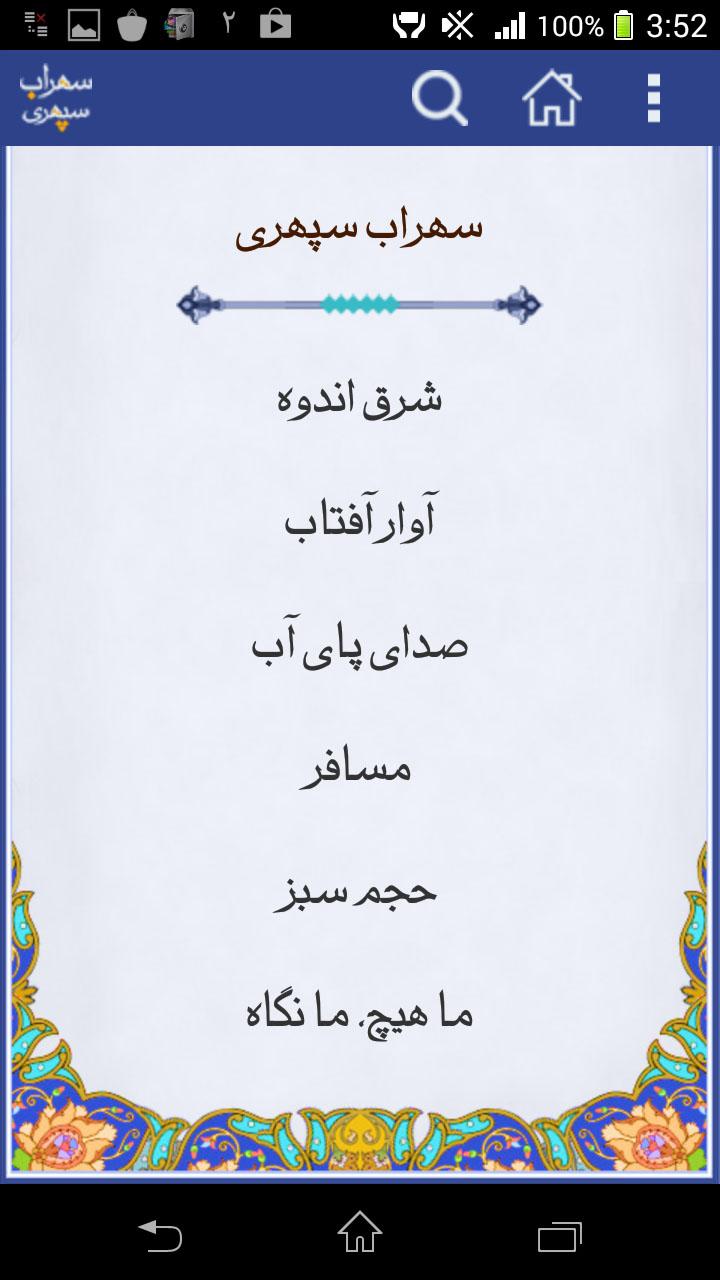 ۲
100%
3:52
سهراب
سپهری
سهراب سپهری
شرق اندوه
آوار آفتاب
صدای پای آب
مسافر
حجم سبز
ما هیچ، ما نگاه